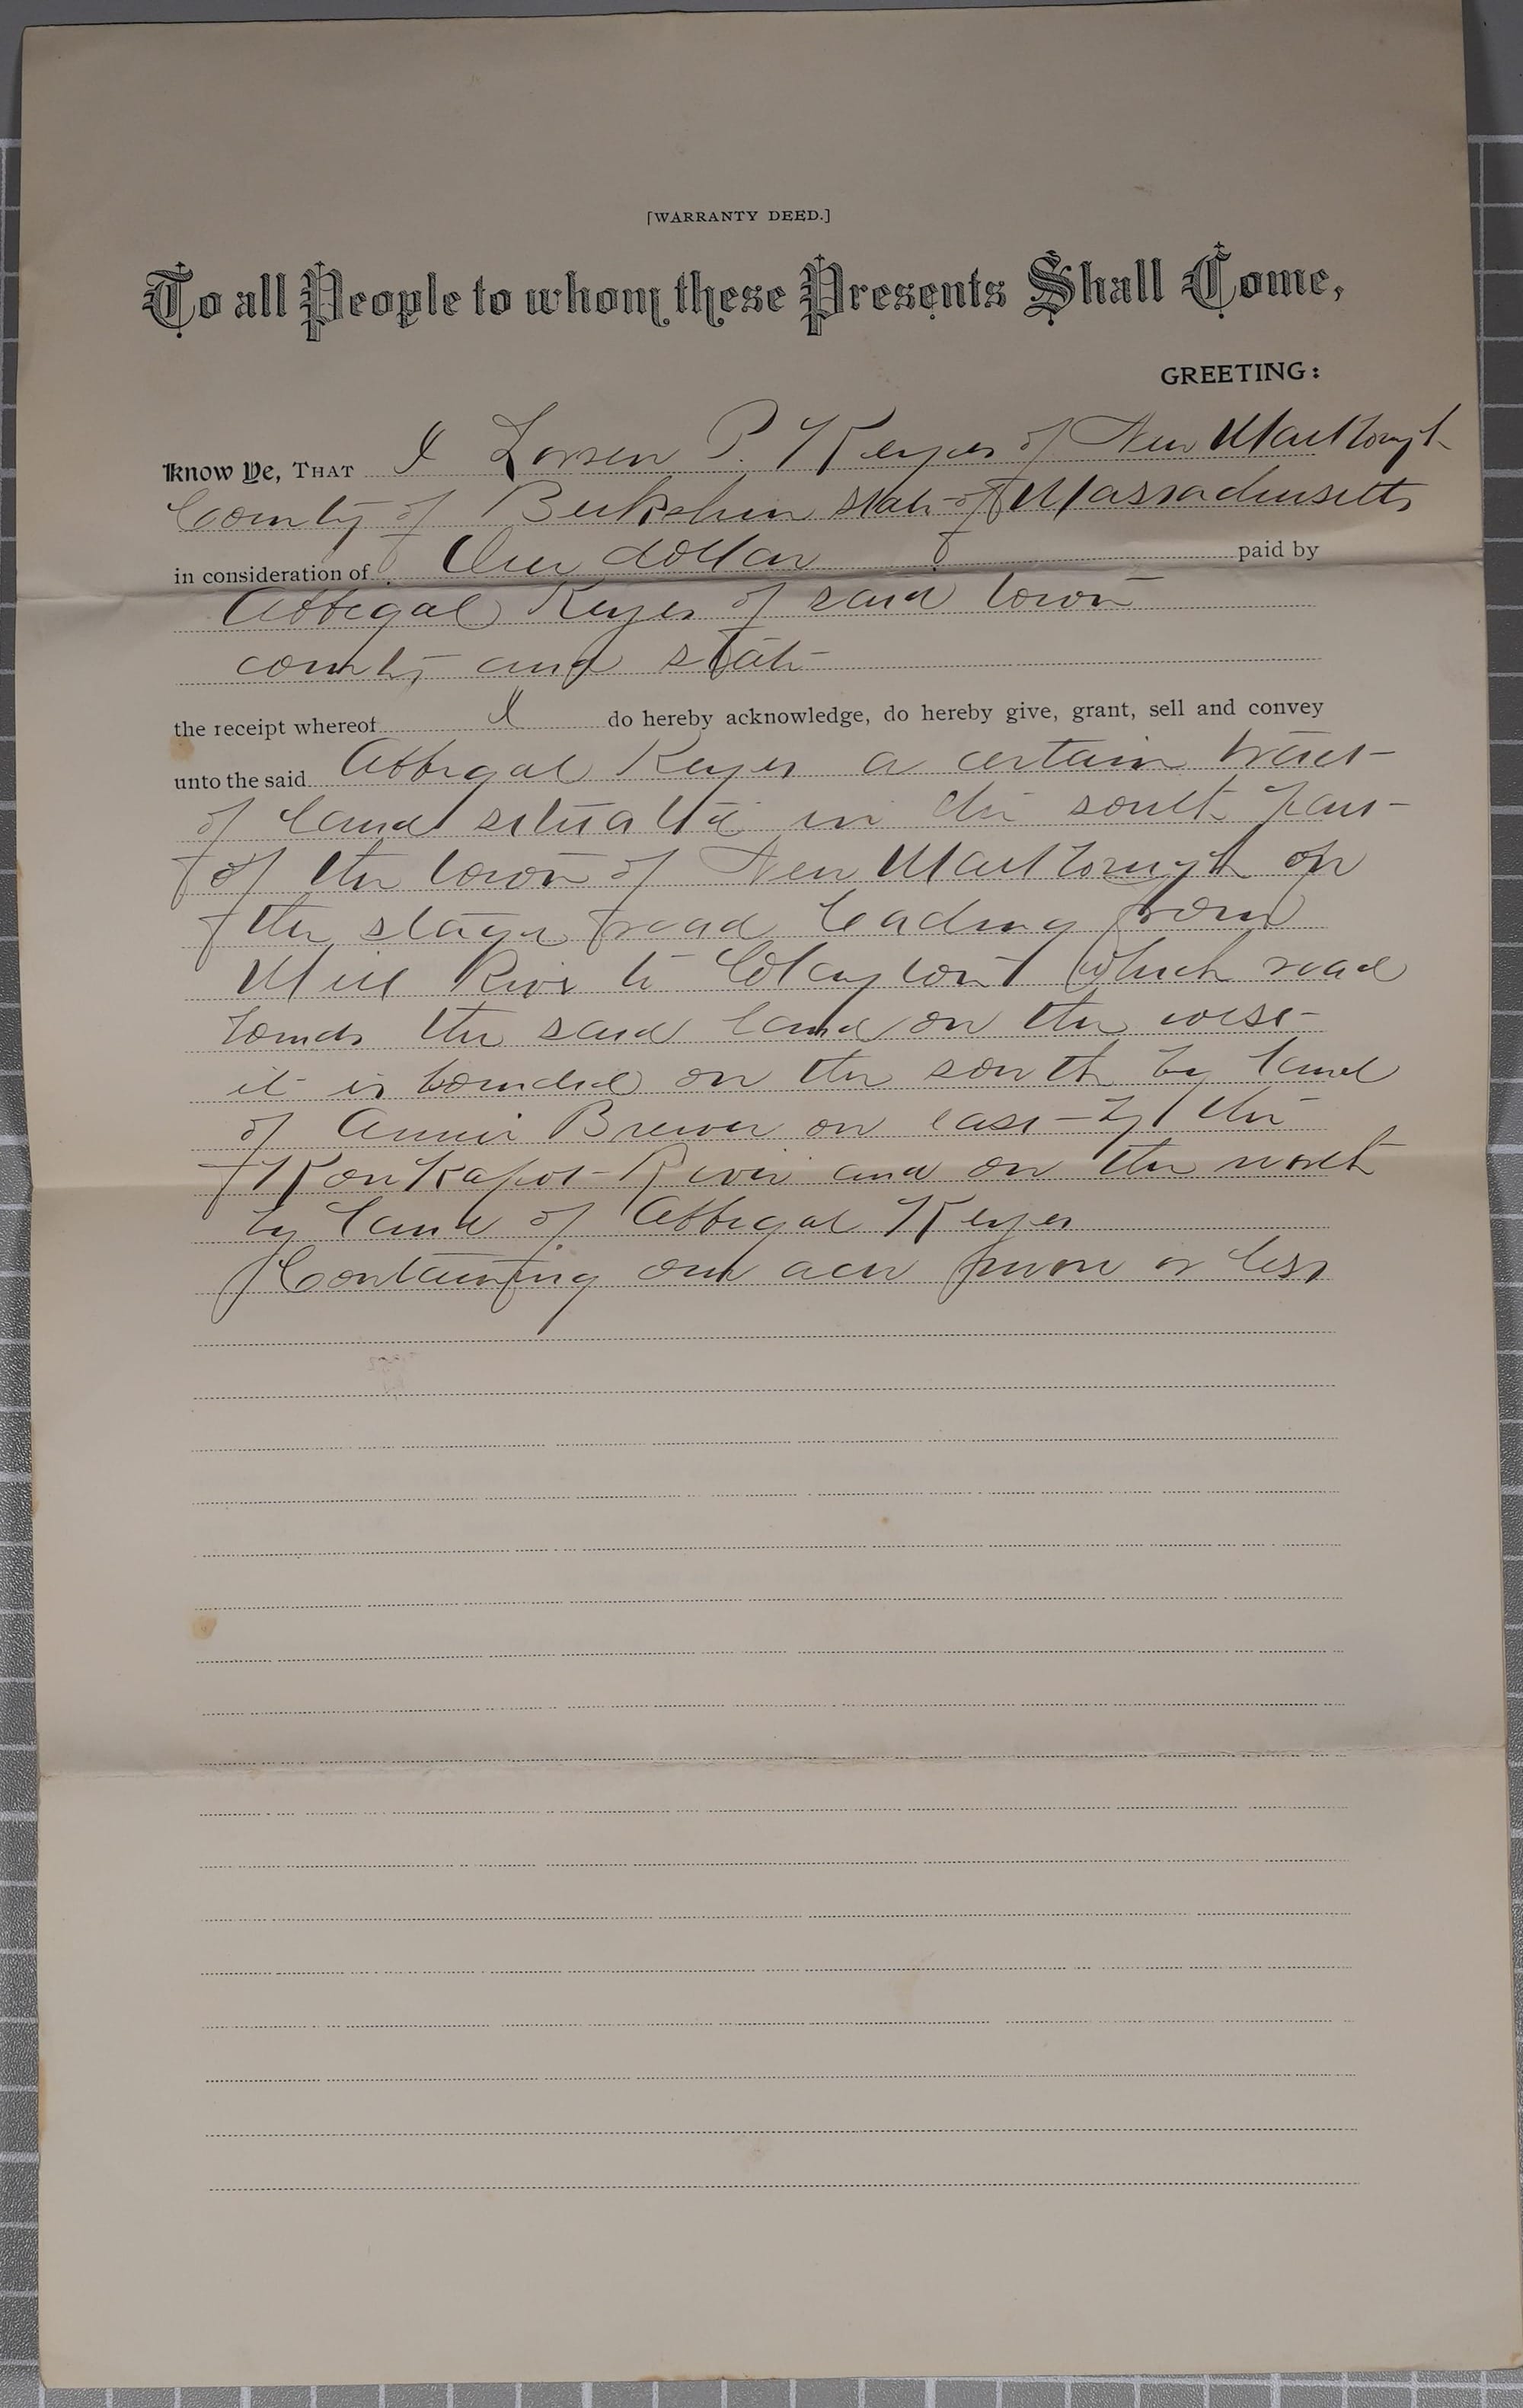 [WARRANTY DEED.]
To all People to whom these Presents Shall Come,
GREETING:
Know Ye, THAT I Loren P. Keyes of New Marlborough
County of Berkshire State of Massachusetts
in consideration of One dollar paid by
Abbegal Keyes of said town
county and state
the receipt whereof I do hereby acknowledge, do hereby give, grant, sell and convey
unto the said Abbegal Keyes a certain tract
of land situated in the south part
of the town of New Marlborough on
the stage road leading from
Mill River to Clayton which road
bounds the said land on the west
it is bounded on the south by land
of Annie Brewer on east by the
Konkapot River and on the north
by land of Abbegal Keyes
Containing one acre more or less